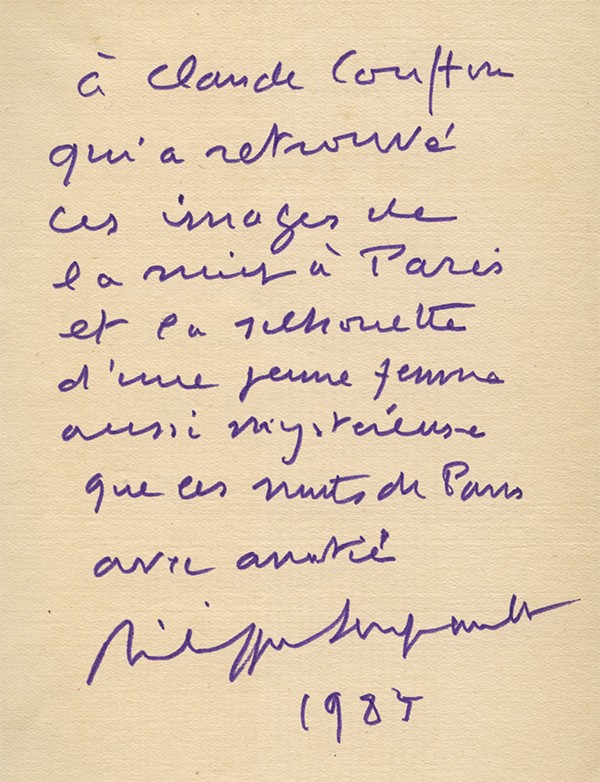 à Claude Couffon
qui a retrouvé
ces images de
la nuit à Paris
et la silhouette
d'une jeune femme
aussi mystérieuse
que ces nuits de Paris
avec amitié
Philippe Soupault
1985